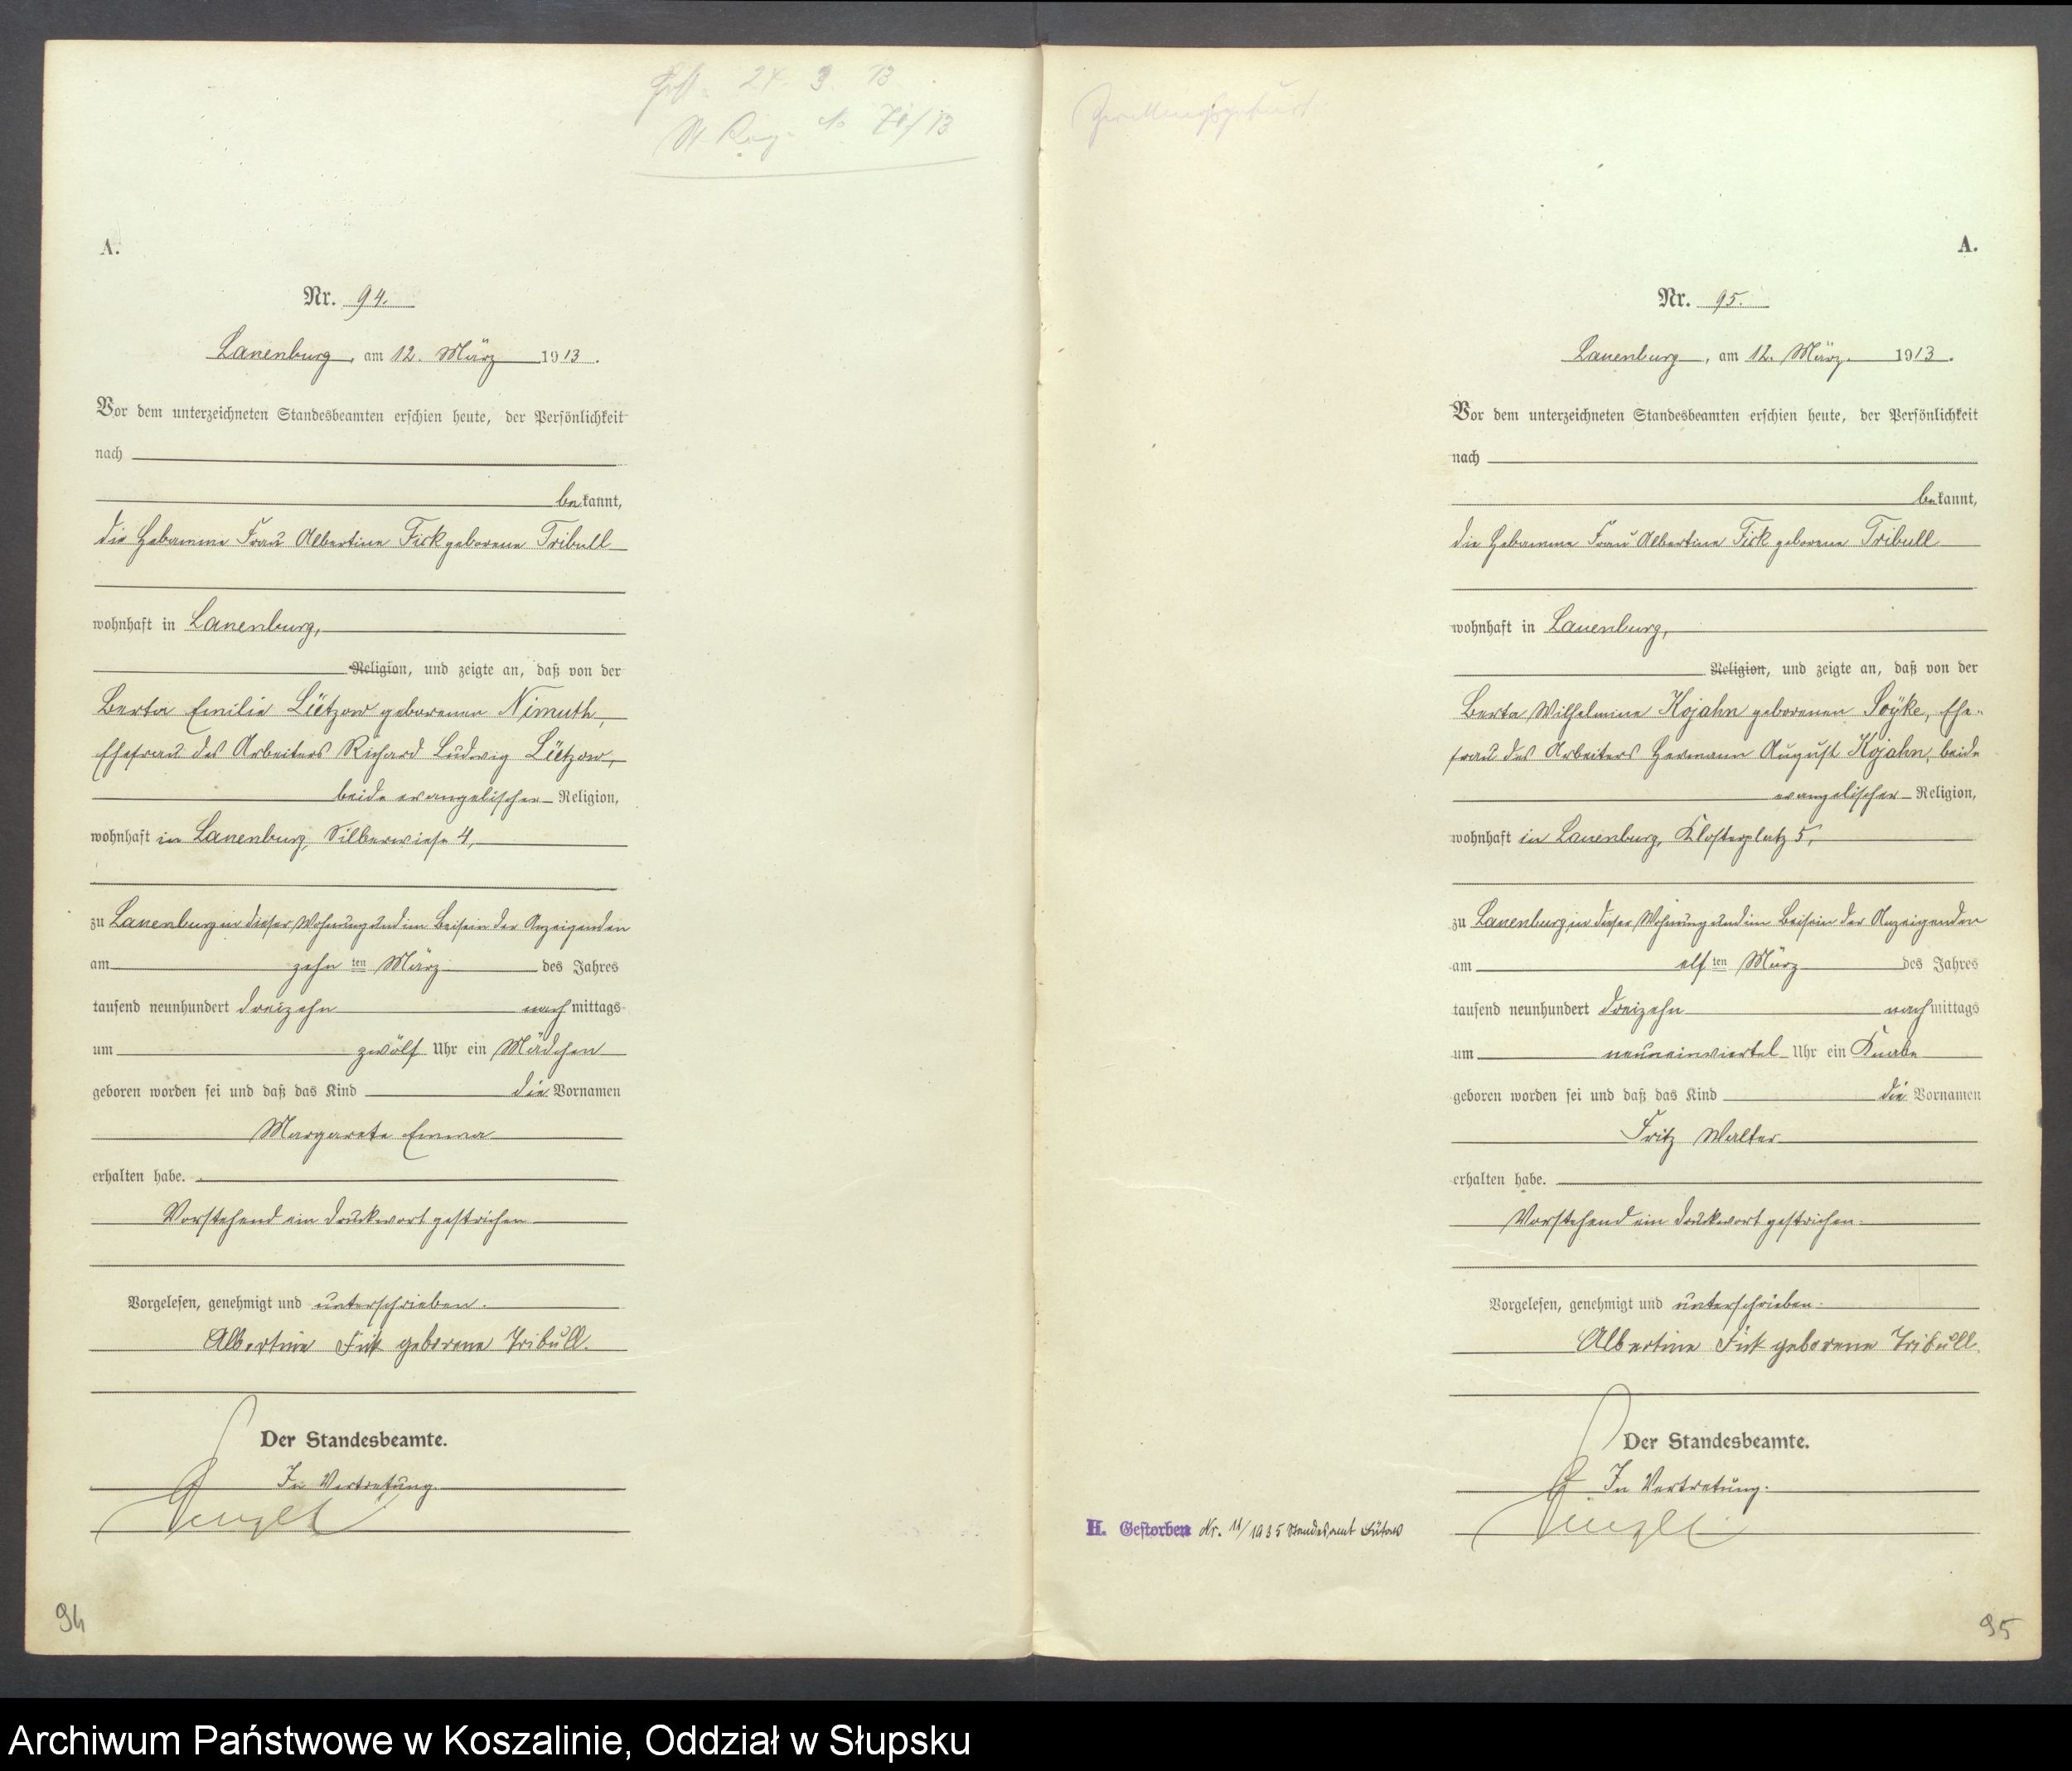 Gest. 24. 3. 13
St. Reg. No 71/13
A.
Nr. 94.
Lauenburg, am 12. März 1913.
Vor dem unterzeichneten Standesbeamten erschien heute, der Persönlichkeit
nach
bekannt,
die Hebamme Frau Albertine Fick geborene Tribull
wohnhaft in Lauenburg,
Religion, und zeigte an, daß von der
Berta Emilie Lützow geborenen Nimuth,
Ehefrau des Arbeiters Richard Ludwig Lützow,
beide evangelischer Religion,
wohnhaft in Lauenburg, Silberwiese 4,
zu Lauenburg in dieser Wohnung und im Beisein der Anzeigenden
am zehn ten März des Jahres
tausend neunhundert dreizehn nachmittags
um zwölf Uhr ein Mädchen
geboren worden sei und daß das Kind die Vornamen
Margarete Emma
erhalten habe.
Vorstehend ein Druckwort gestrichen.
Vorgelesen, genehmigt und unterschrieben.
Albertine Fick geborene Tribull.
Der Standesbeamte.
In Vertretung.
94
Zwillingsgeburt
A.
Nr. 95.
Lauenburg, am 12. März. 1913.
Vor dem unterzeichneten Standesbeamten erschien heute, der Persönlichkeit
nach
bekannt,
die Hebamme Frau Albertine Fick geborene Tribull
wohnhaft in Lauenburg,
Religion, und zeigte an, daß von der
Berta Wilhelmine Kojahn geborenen Poÿke, Ehe-
frau des Arbeiters Hermann August Kojahn, beide
evangelischer Religion,
wohnhaft in Lauenburg, Klosterplatz 5,
zu Lauenburg, in dieser Wohnung und im Beisein der Anzeigenden
am elf ten März des Jahres
tausend neunhundert dreizehn nachmittags
um neuneinviertel Uhr ein Knabe
geboren worden sei und daß das Kind die Vornamen
Fritz Walter
erhalten habe.
Vorstehend ein Druckwort gestrichen.
Vorgelesen, genehmigt und unterschrieben.
Albertine Fick geborene Tribull.
Der Standesbeamte.
In Vertretung.
H. Gestorben Nr. 11/1935 Standesamt Bütow
95
Archiwum Państwowe w Koszalinie, Oddział w Słupsku